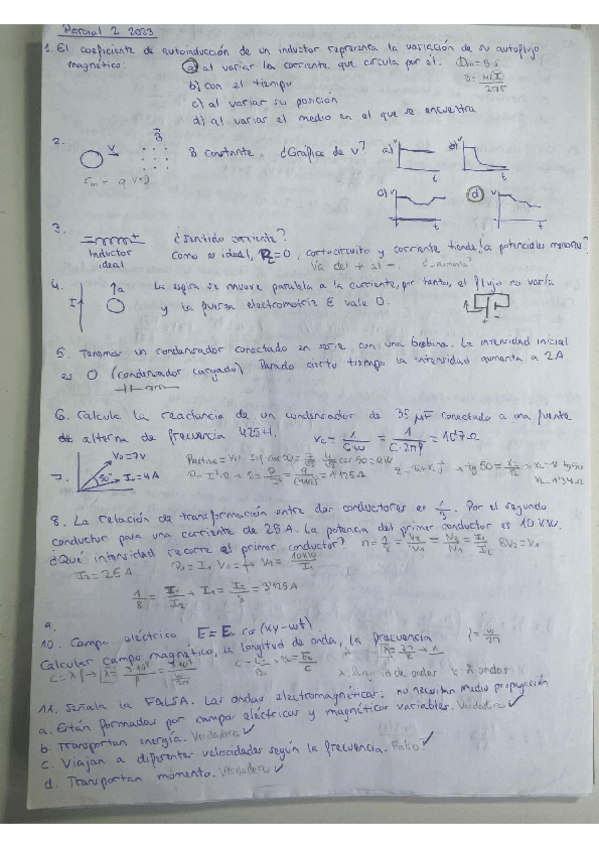 Parcial 2 2023
1. El coeficiente de autoinducción de un inductor representa la variación de su autoflujo
magnético:
a) al variar la corriente que circula por él.
b) con el tiempo
c) al variar su posición
d) al variar el medio en el que se encuentra
2.
V
B
B constante. ¿Gráfica de v? a) b)
c) d)
3.
Inductor
ideal
¿Sentido corriente?
Como es ideal, R=0, cortocircuito y corriente tiende a potenciales menores
Va del + al -.
4.
La espira se mueve paralela a la corriente, por tanto, el flujo no varía
y la fuerza electromotriz E vale 0.
5. Tenemos un condensador conectado en serie con una bobina. La intensidad inicial
es 0 (condensador cargado). Pasado cierto tiempo la intensidad aumenta a 2A
6. Calcula la reactancia de un condensador de 35 μF conectado a una fuente
de alterna de frecuencia 425H. Vc = 1/Cω = 1/C·2πf = 10'7Ω
7.
V0=7V
50° I0=4A
8. La relación de transformación entre dos conductores es 1/8. Por el segundo
conductor pasa una corriente de 25A. La potencia del primer conductor es 10 KW.
¿Qué intensidad recorre el primer conductor? n=1/8 = V2/V1 = N2/N1 = I1/I2 8V2=V1
I2=25A P1=I1·V1 → V1=10KW/I1
1/8 = I1/I2 → I1 = I2/8 = 3'125A
9.
10. Campo eléctrico E=E0 (Ky-wt)
Calcular campo magnético, la longitud de onda, la frecuencia f=w/2π
11. Señala la FALSA. Las ondas electromagnéticas: no necesitan medio propagación
a. Están formadas por campos eléctricos y magnéticos variables. Verdadero ✓
b. Transportan energía. Verdadera ✓
c. Viajan a diferentes velocidades según la frecuencia. Falso ✓
d. Transportan momento. Verdadero ✓